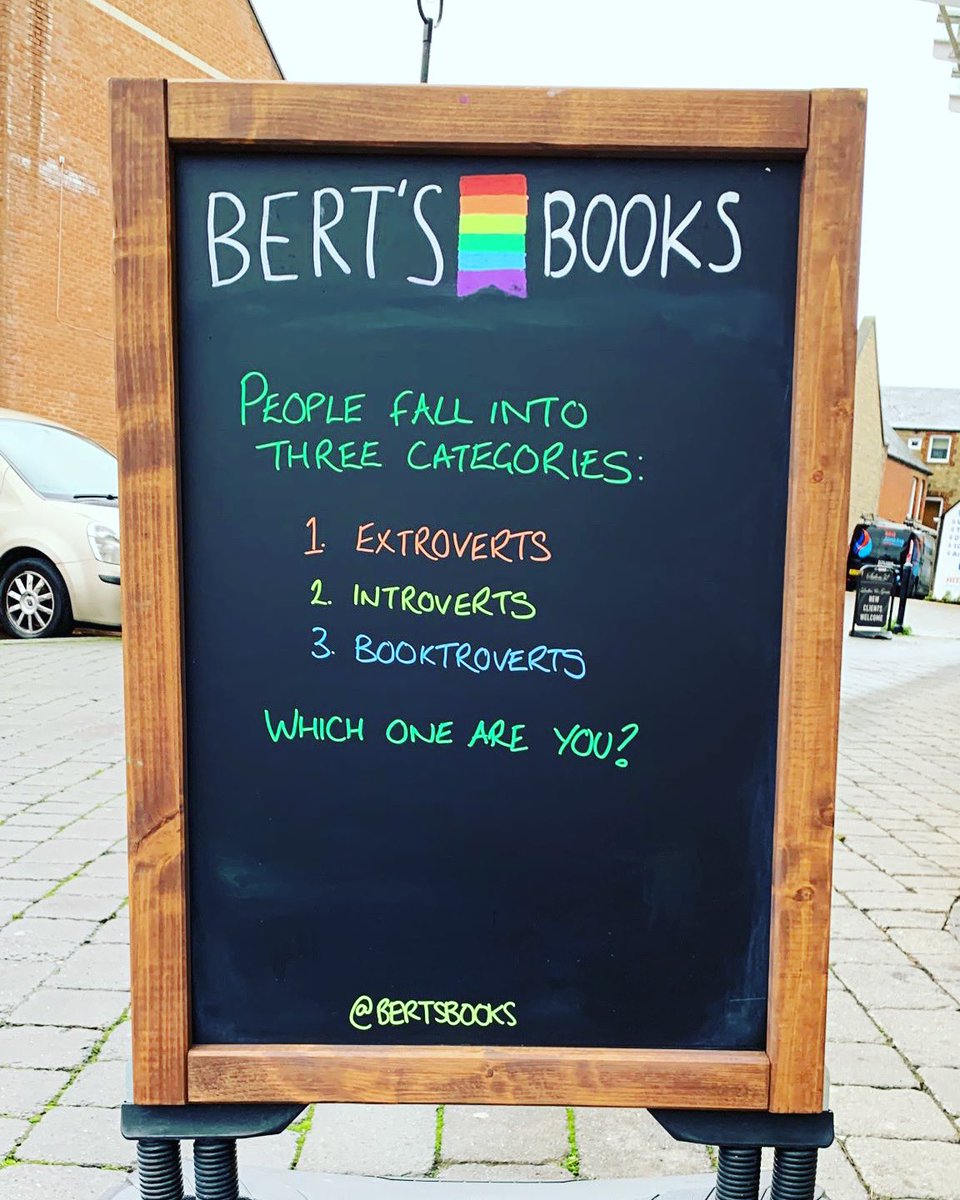 BERT'S BOOKS
PEOPLE FALL INTO
THREE CATEGORIES:
1. EXTROVERTS
2. INTROVERTS
3. BOOKTROVERTS
WHICH ONE ARE YOU?
@BERTSBOOKS
NEW
CLIENTS
WELCOME